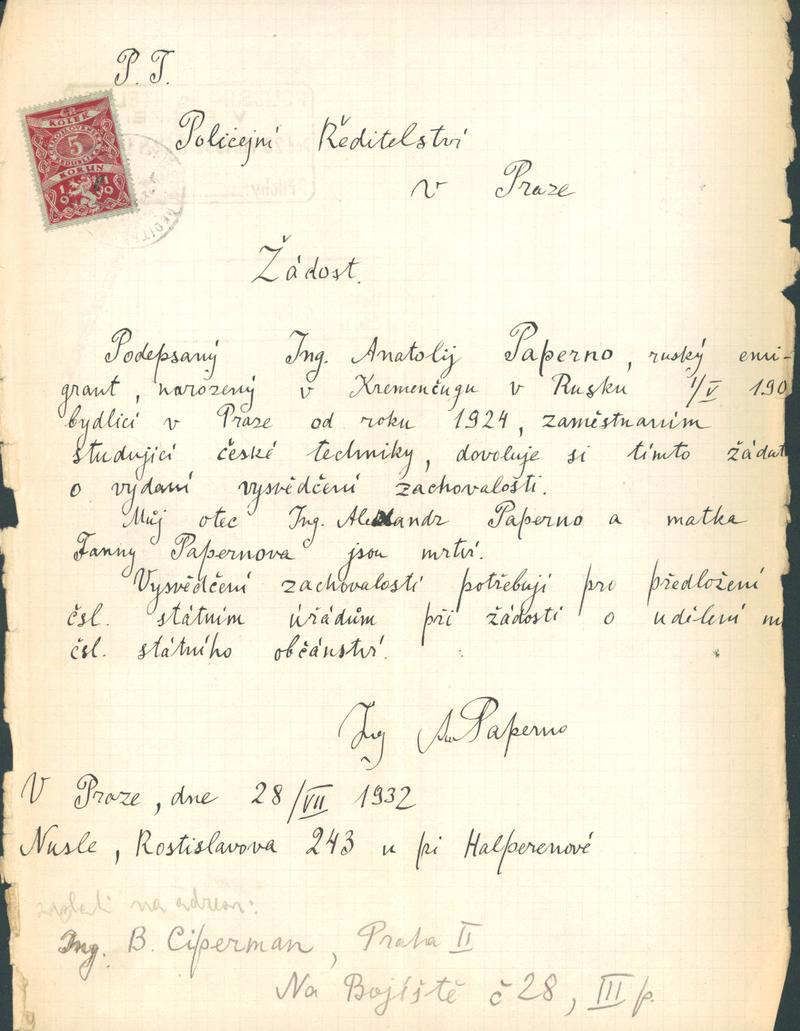 P. T.
Policejní Ředitelství
v Praze
KOLEK
5
KORUN
Žádost.
Podepsaný Ing. Anatolij Paperno, ruský emi-
grant, narozený v Kremenčugu v Rusku 1/V 190
bydlící v Praze od roku 1924, zaměstnaním
študující české techniky, dovoluje si tímto žádat
o vydaní vysvědčení zachovalosti.
Můj otec Ing. Alexandr Paperno a matka
Fanny Papernova jsou mrtví.
Vysvědčení zachovalosti potřebuji pro předložení
čsl. státním úřádům při žádosti o udělení m
čsl. státního občánství.
Ing A Paperno
V Praze, dne 28/VII 1932
Nusle, Rostislavova 243 u pí Halperenové
na adresu:
Ing. B. Ciperman, Praha II
Na Bojíště č 28, III p.